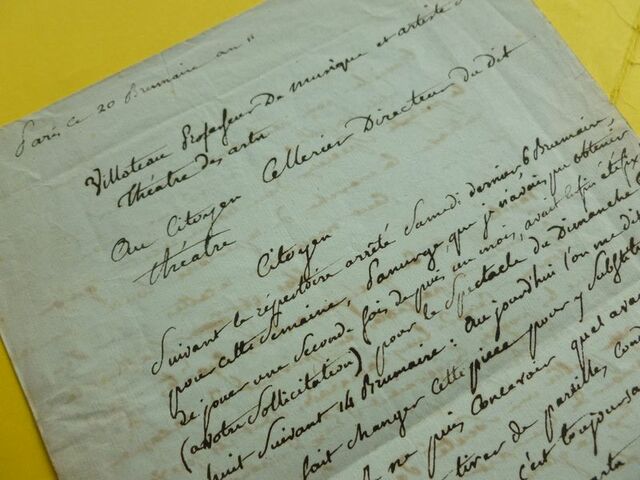 Paris ce 20 Brumaire an 11
Villoteau Professeur De musique et artiste
Théatre des arts
Au Citoyen Cellerier Directeur du dit
théatre
Citoyen
Suivant le répertoire arrêté Samedi dernier 6 Brumaire,
pour cette Semaine, Panurge que j'avais pu obtenir
de jouer une Seconde fois depuis un mois, avait été fixé
(a votre Sollicitation) pour le Spectacle du Dimanche
Suivant 14 Brumaire: Aujourd'hui l'on me dit
fait changer cette piece pour y Substituer
ne puis concevoir quel
tirer de pareilles
c'est toujours